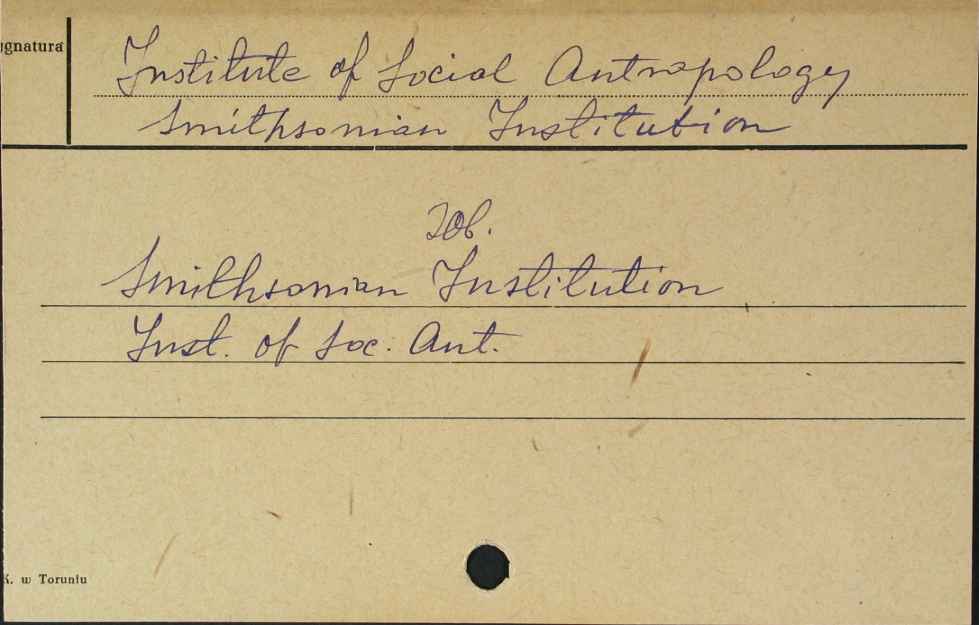 ignatura
Institute of Social Antropology
Smithsonian Institution
zob.
Smithsonian Institution
Inst. of Soc. Ant.
K. w Toruniu